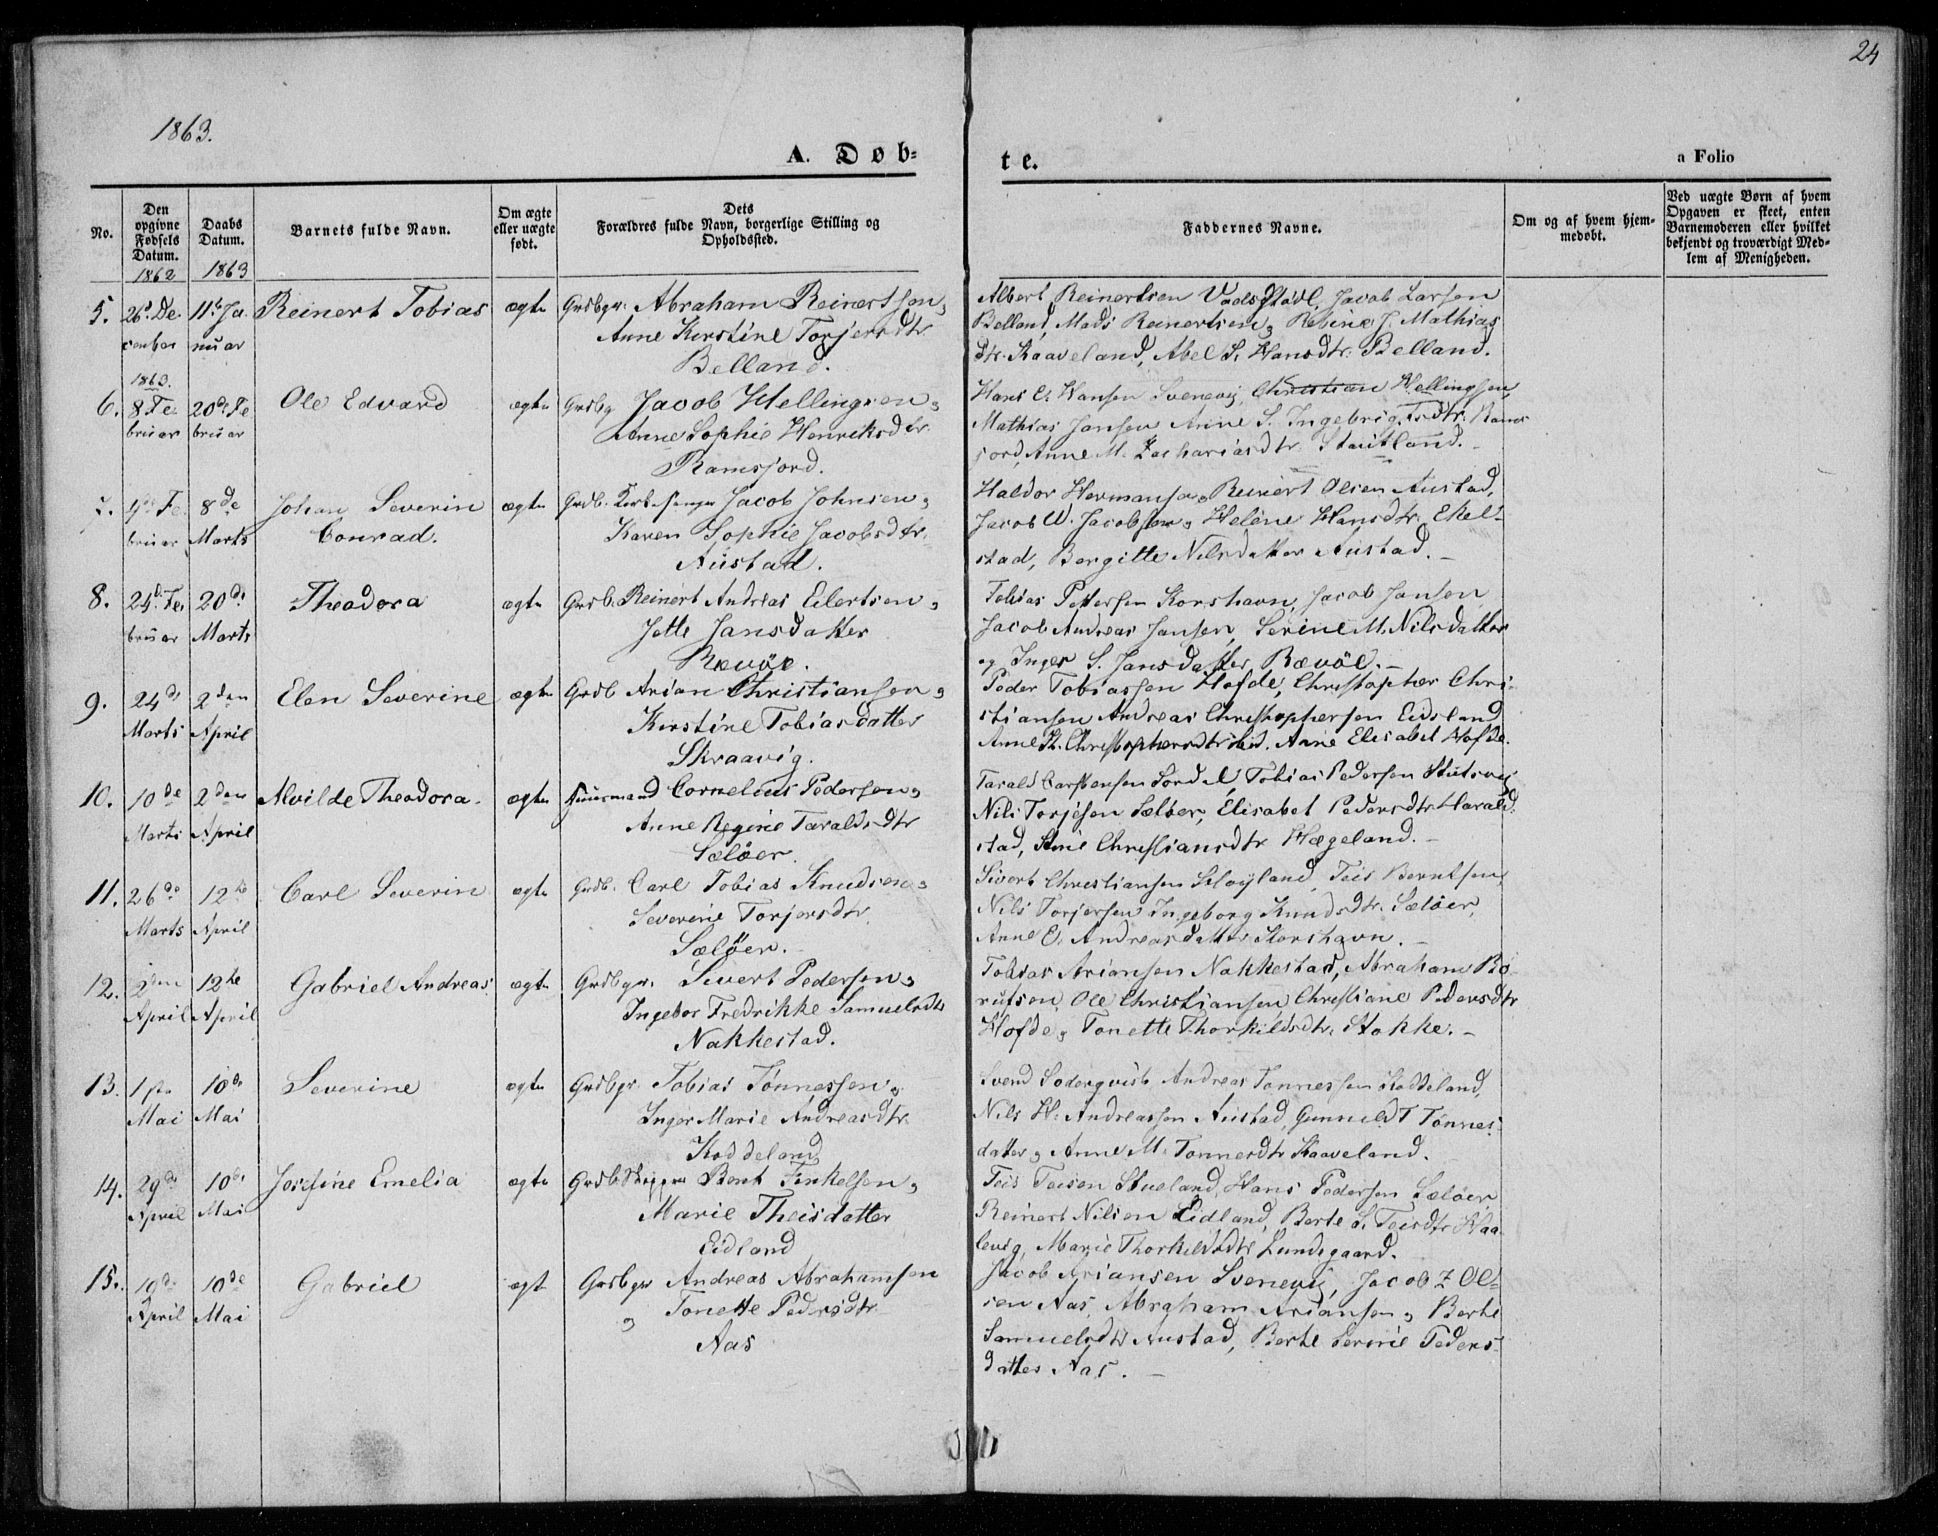 24
1863.
A. Døb-
te.
a Folio
No.
Den opgivne Fødsels Datum.
Daabs Datum.
Barnets fulde Navn.
Om ægte eller uægte født.
Dets Forældres fulde Navn, borgerlige Stilling og Opholdssted.
Faddernes Navne.
Om og af hvem hjemmedøbt.
Ved uægte Børn af hvem Opgaven er skeet, enten Barnemoderen eller hvilket bekjendt og troværdigt Medlem af Menigheden.
1862 1863
5. 26de De- 11te Ja- Reinert Tobias ægte Grdbgr. Abraham Reinertsen,
cember nuar Anne Kirstine Torjersdtr
Belland.
Albert Reinertsen Vadsstödl, Jacob Larsen
Belland, Mads Reinertsen, J. Mathias
dtr. Kaaveland, Abel S. Hansdtr. Belland.
1863.
6. 8 Fe- 20de Fe Ole Edvard ægte Grdbg Jacob Hellingsen,
bruar bruar Anne Sophie Henriksdtr
Ramsjord.
Hans C. Hansen Svenevig, Christian Hellingsen,
Mathias Jansen Anne S. Ingebrigtsdtr. Rams
jord, Anne M. Zachariasdtr. Stuitland.
4de Fe 8de Johan Severin ægte Grdb. Jacob Johnsen,
bruar Marts Conrad. Karen Sophie Jacobsdtr.
Austad.
Haldor Hermansen, Reinert Olsen Austad,
Jacob W. Jacobsen, Helene Hansdtr. Ekel-
stad, Bergitte Nilsdatter Austad.
8. 24de Fe 20de Theodora ægte Grdb. Reinert Andreas Eilertsen,
bruar Marts Jette Jansdatter
Rævöe.
Tobias Pettersen Korshavn, Jacob Jansen
Jacob Andreas Jansen, Serine M. Nilsdatter
og Inger S. Jansdatter Rævöe.
9. 24de 2den Elen Severine ægte Grdb Arian Christiansen,
Marts April Kirstine Tobiasdatter
Skraavig.
Peder Tobiassen Hofde, Christopher Chri-
stiansen Andreas Christophersen Eidsland
Anne K. Christophersdtr ibid. Anne Elisabet Hofde.
10. 10de 2den Alvilde Theodora. ægte Huusmand Cornelius Pedersen,
Marts April Anne Regine Taraldsdtr
Sælöer.
Tarald Carstensen Sördal, Tobias Pedersen Stutsvig
Nils Torjesen Sælöer, Elisabet Pedersdtr Harald-
stad, Stine Christiansdtr Hægeland.
11. 26de 12te Carl Severin ægte Grdb. Carl Tobias Knudsen,
Marts April Severine Torjersdtr
Sælöer.
Sivert Christiansen Höyland, Teis Berntsen,
Nils Torjersen Ingeborg Knudsdtr. Sælöer,
Anne E. Andreasdatter Korshavn.
12. 2den 12te Gabriel Andreas ægte Grdbgr. Sivert Pedersen,
April April Ingebor Fredrikke Samuelsdtr
Nakkestad.
Tobias Ariansen Nakkestad, Abraham Bö-
rufsen, Ole Christiansen, Christiane Pedersdtr
Hofde, Tonette Thorkildsdtr. Stokke.
13. 1ste 10de Severine ægte Grdbgr Tobias Tönnessen,
Mai Mai Inger Marie Andreasdtr.
Koddeland
Svend Soderqvist Andreas Tönnessen Koddeland,
Nils H. Andreassen Austad, Gunnild T Tönnes-
datter, Anne M. Tönnesdtr Kaaveland.
14. 29de 10de Josefine Emelia ægte Grdb Skipper Bent Tenkelsen,
April Mai Marie Theisdatter
Eidland
Teis Teisen Stueland, Hans Pedersen Sælöer
Reinert Nilsen Eidland, Berte S. Teisdtr Haa-
levig, Marie Thorkildsdtr Lundegaard.
15. 19de 10de Gabriel ægte Grdbgr Andreas Abrahamsen
April Mai Tonette Pedersdtr
Aas
Jacob Ariansen Svenevig, Jacob Z Ol-
sen Aas, Abraham Ariansen, Berte
Samuelsdtr Austad, Berte Serine Peders-
datter Aas.